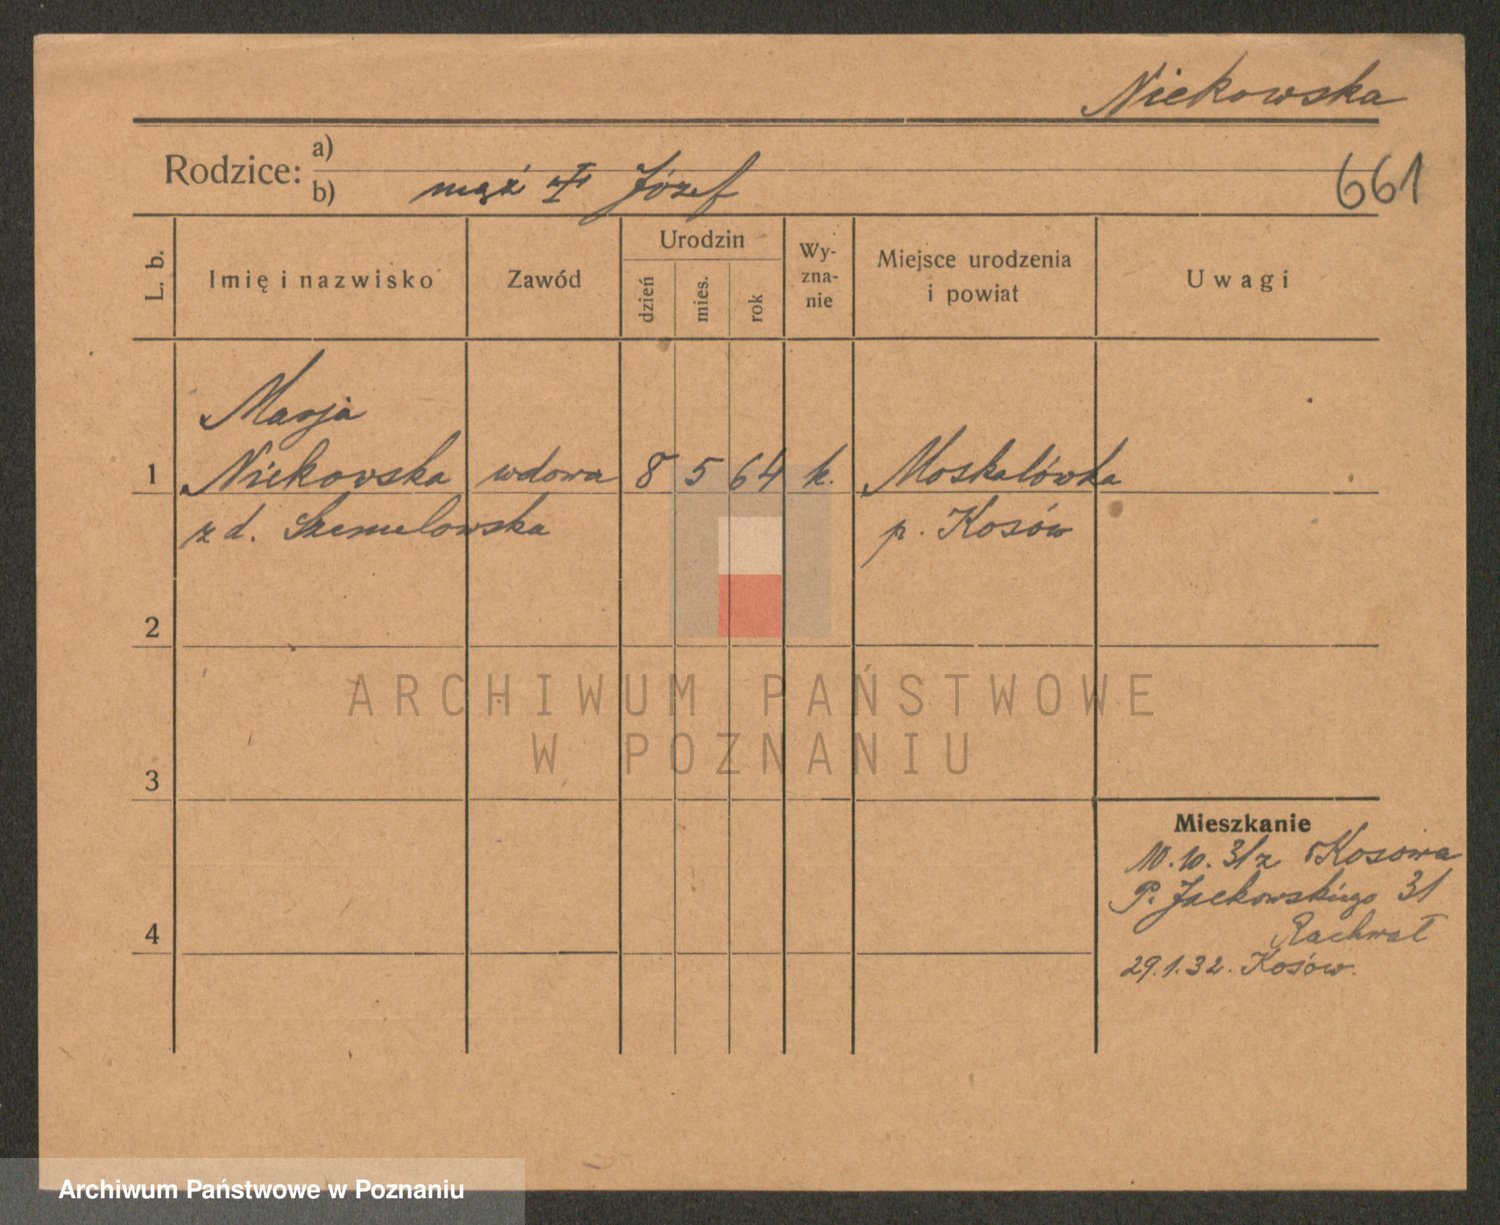 Niekowska
Rodzice: a)
b) mąż † Józef
661
L. b.
Imię i nazwisko
Zawód
Urodzin
dzień
mies.
rok
Wy-
zna-
nie
Miejsce urodzenia
i powiat
Uwagi
Marja
1 Niekowska wdowa 8 5 64 k. Moskalówka
z d. Szemelowska p. Kosów
2
3
4
Mieszkanie
10.10.31 z Kosowa
P. Jackowskiego 31
Rachwał
29.1.32. Kosów.
ARCHIWUM PAŃSTWOWE
W POZNANIU
Archiwum Państwowe w Poznaniu